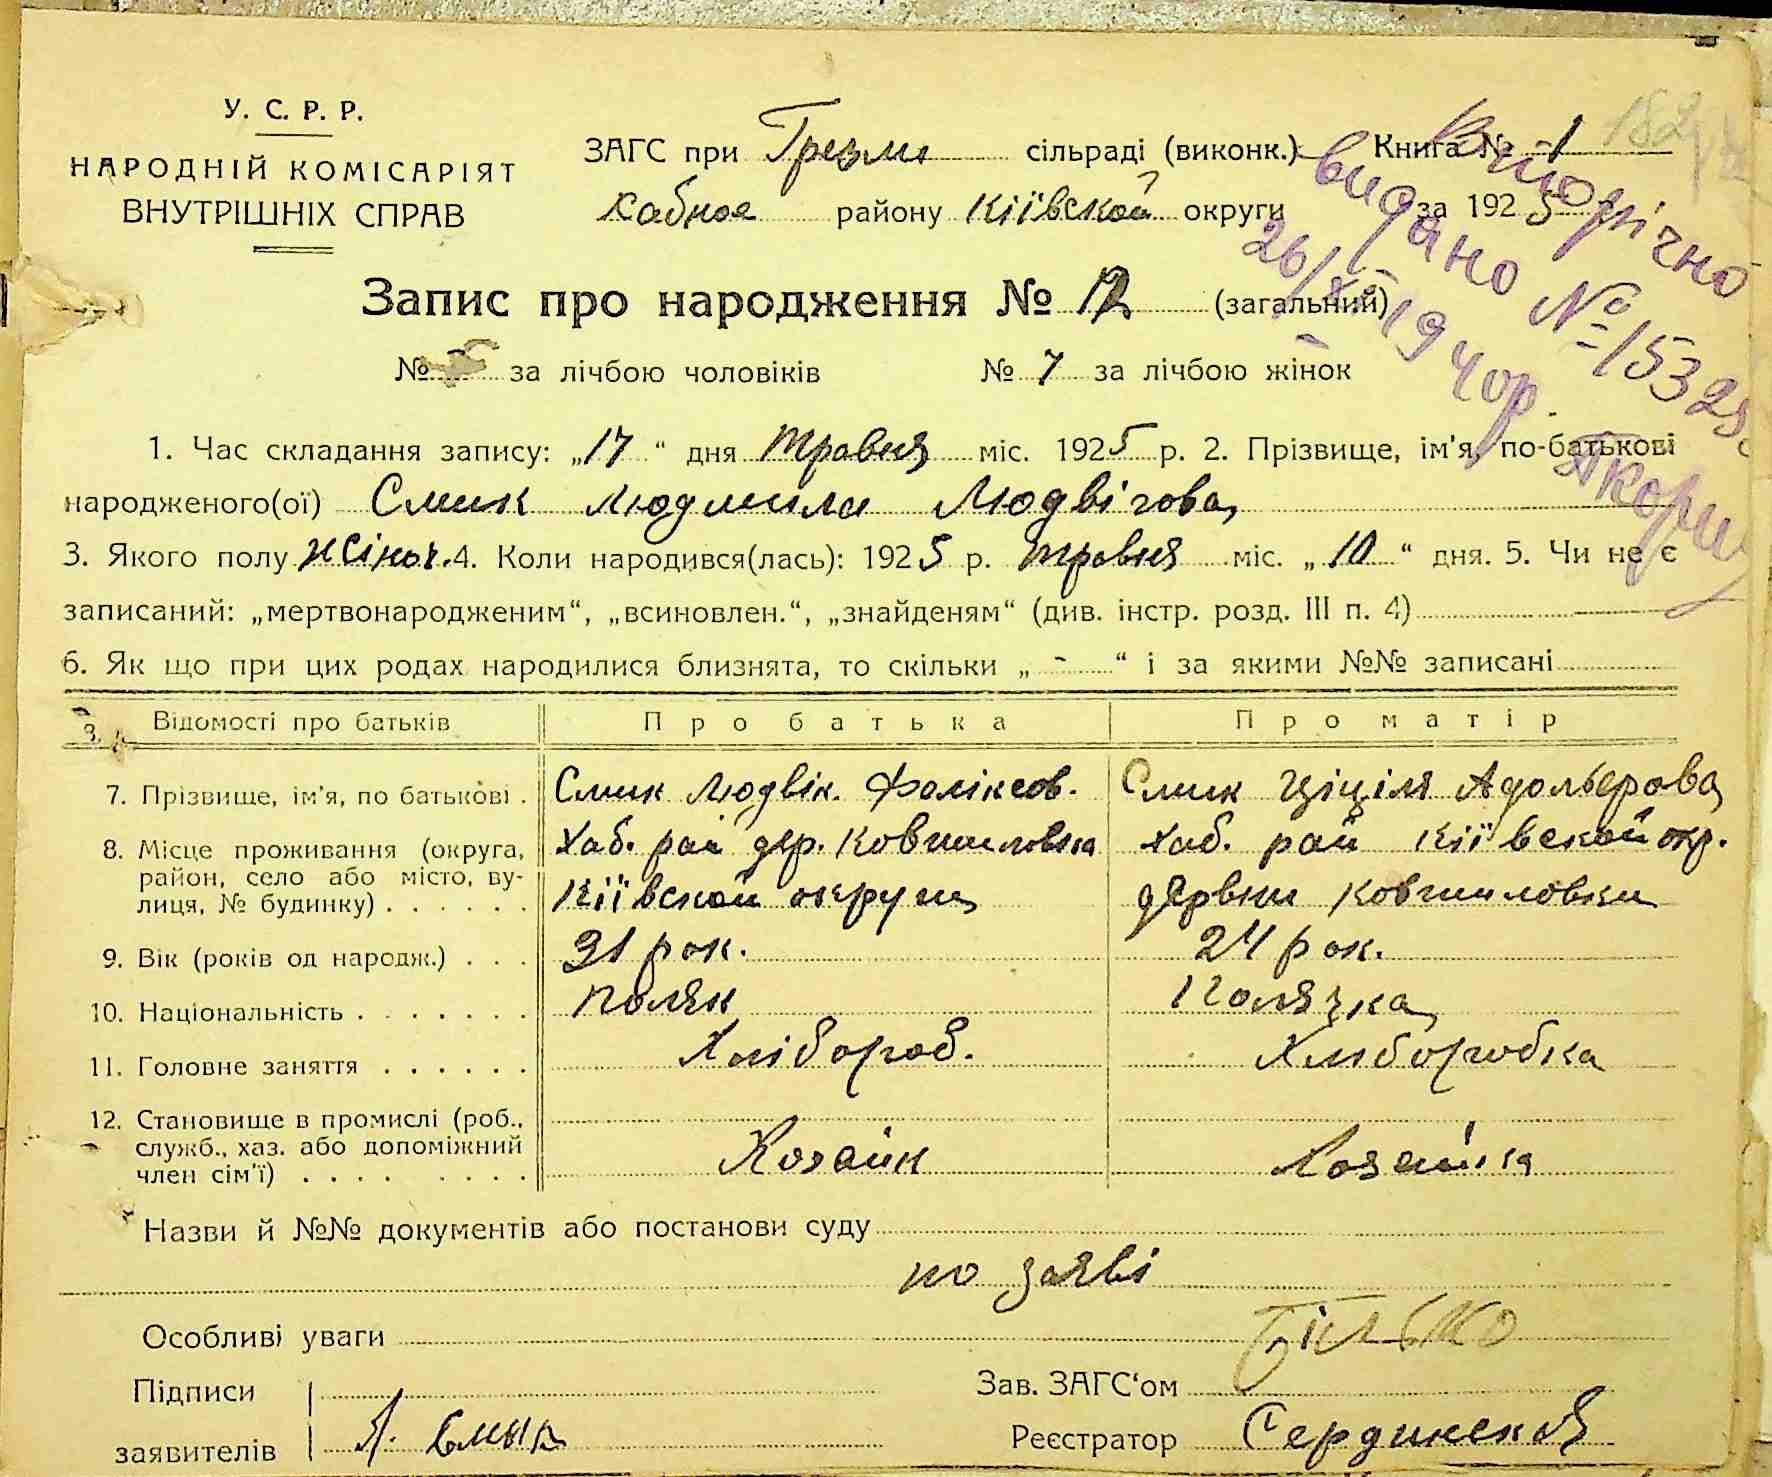 У. С. Р. Р.
НАРОДНІЙ КОМІСАРІЯТ
ВНУТРІШНІХ СПРАВ
ЗАГС при Грезли сільраді (виконк.) Книга № 1
Хабное району Кіївской округи за 1925 р.
Вторічно
видано № 153
26/XI 1940р.
Запис про народження № 12 (загальний)
№ за лічбою чоловіків № 7 за лічбою жінок
1. Час складання запису: „17“ дня Травня міс. 1925 р. 2. Прізвище, ім'я, по-батькові
народженого(ої) Смик Людмила Людвігова
3. Якого полу жіноч. 4. Коли народився(лась): 1925 р. травня міс. „10“ дня. 5. Чи не є
записаний: „мертвонародженим“, „всиновлен.“, „знайденям“ (див. інстр. розд. III п. 4)
6. Як що при цих родах народилися близнята, то скільки „ - “ і за якими №№ записані
Відомості про батьків Про батька Про матір
7. Прізвище, ім'я, по батькові . Смик Людвік. Феліксов. Смик Ціціля Адольфова
8. Місце проживання (округа, район, село або місто, вулиця, № будинку) . . . . . . Хаб. рай дер. Ковшиловка Кіївской округи Хаб. рай Кіївской окр. дервни Ковшиловки
9. Вік (років од народж.) . . . 31 рок. 24 рок.
10. Національність . . . . . . . поляк Полячка
11. Головне заняття . . . . . . Хлібороб. Хліборобка
12. Становище в промислі (роб., служб., хаз. або допоміжний член сім'ї) . . . . . . . . Хозяйн Хозяйка
Назви й №№ документів або постанови суду
по заяві
Особливі уваги
Підписи
заявителів Л. Смык
Зав. ЗАГС'ом Білько
Реєстратор